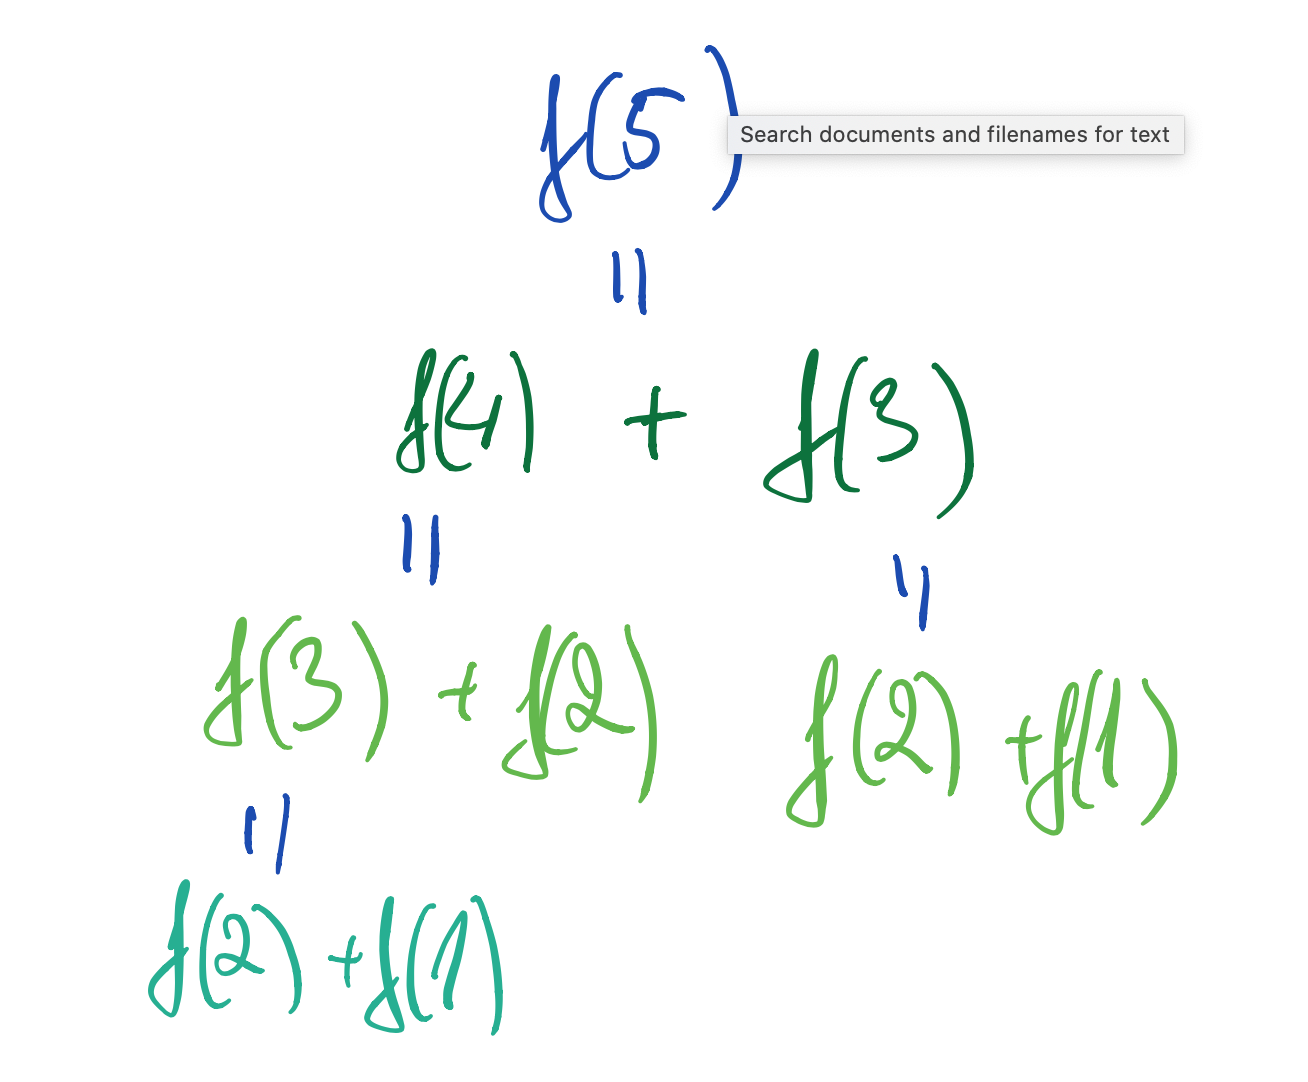 f(5)
Search documents and filenames for text
=
f(4) + f(3)
= =
f(3) + f(2) f(2) + f(1)
=
f(2) + f(1)